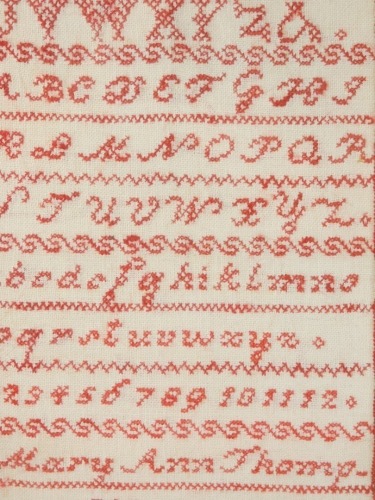 W W X Y Z &.
A B C D E F G H I
K L M N O P Q R
T U V W X Y Z.
a b c d e f g h i k l m n o
p q r s t u v w x y z.
2 3 4 5 6 7 8 9 10 11 12.
Mary Ann Thomp